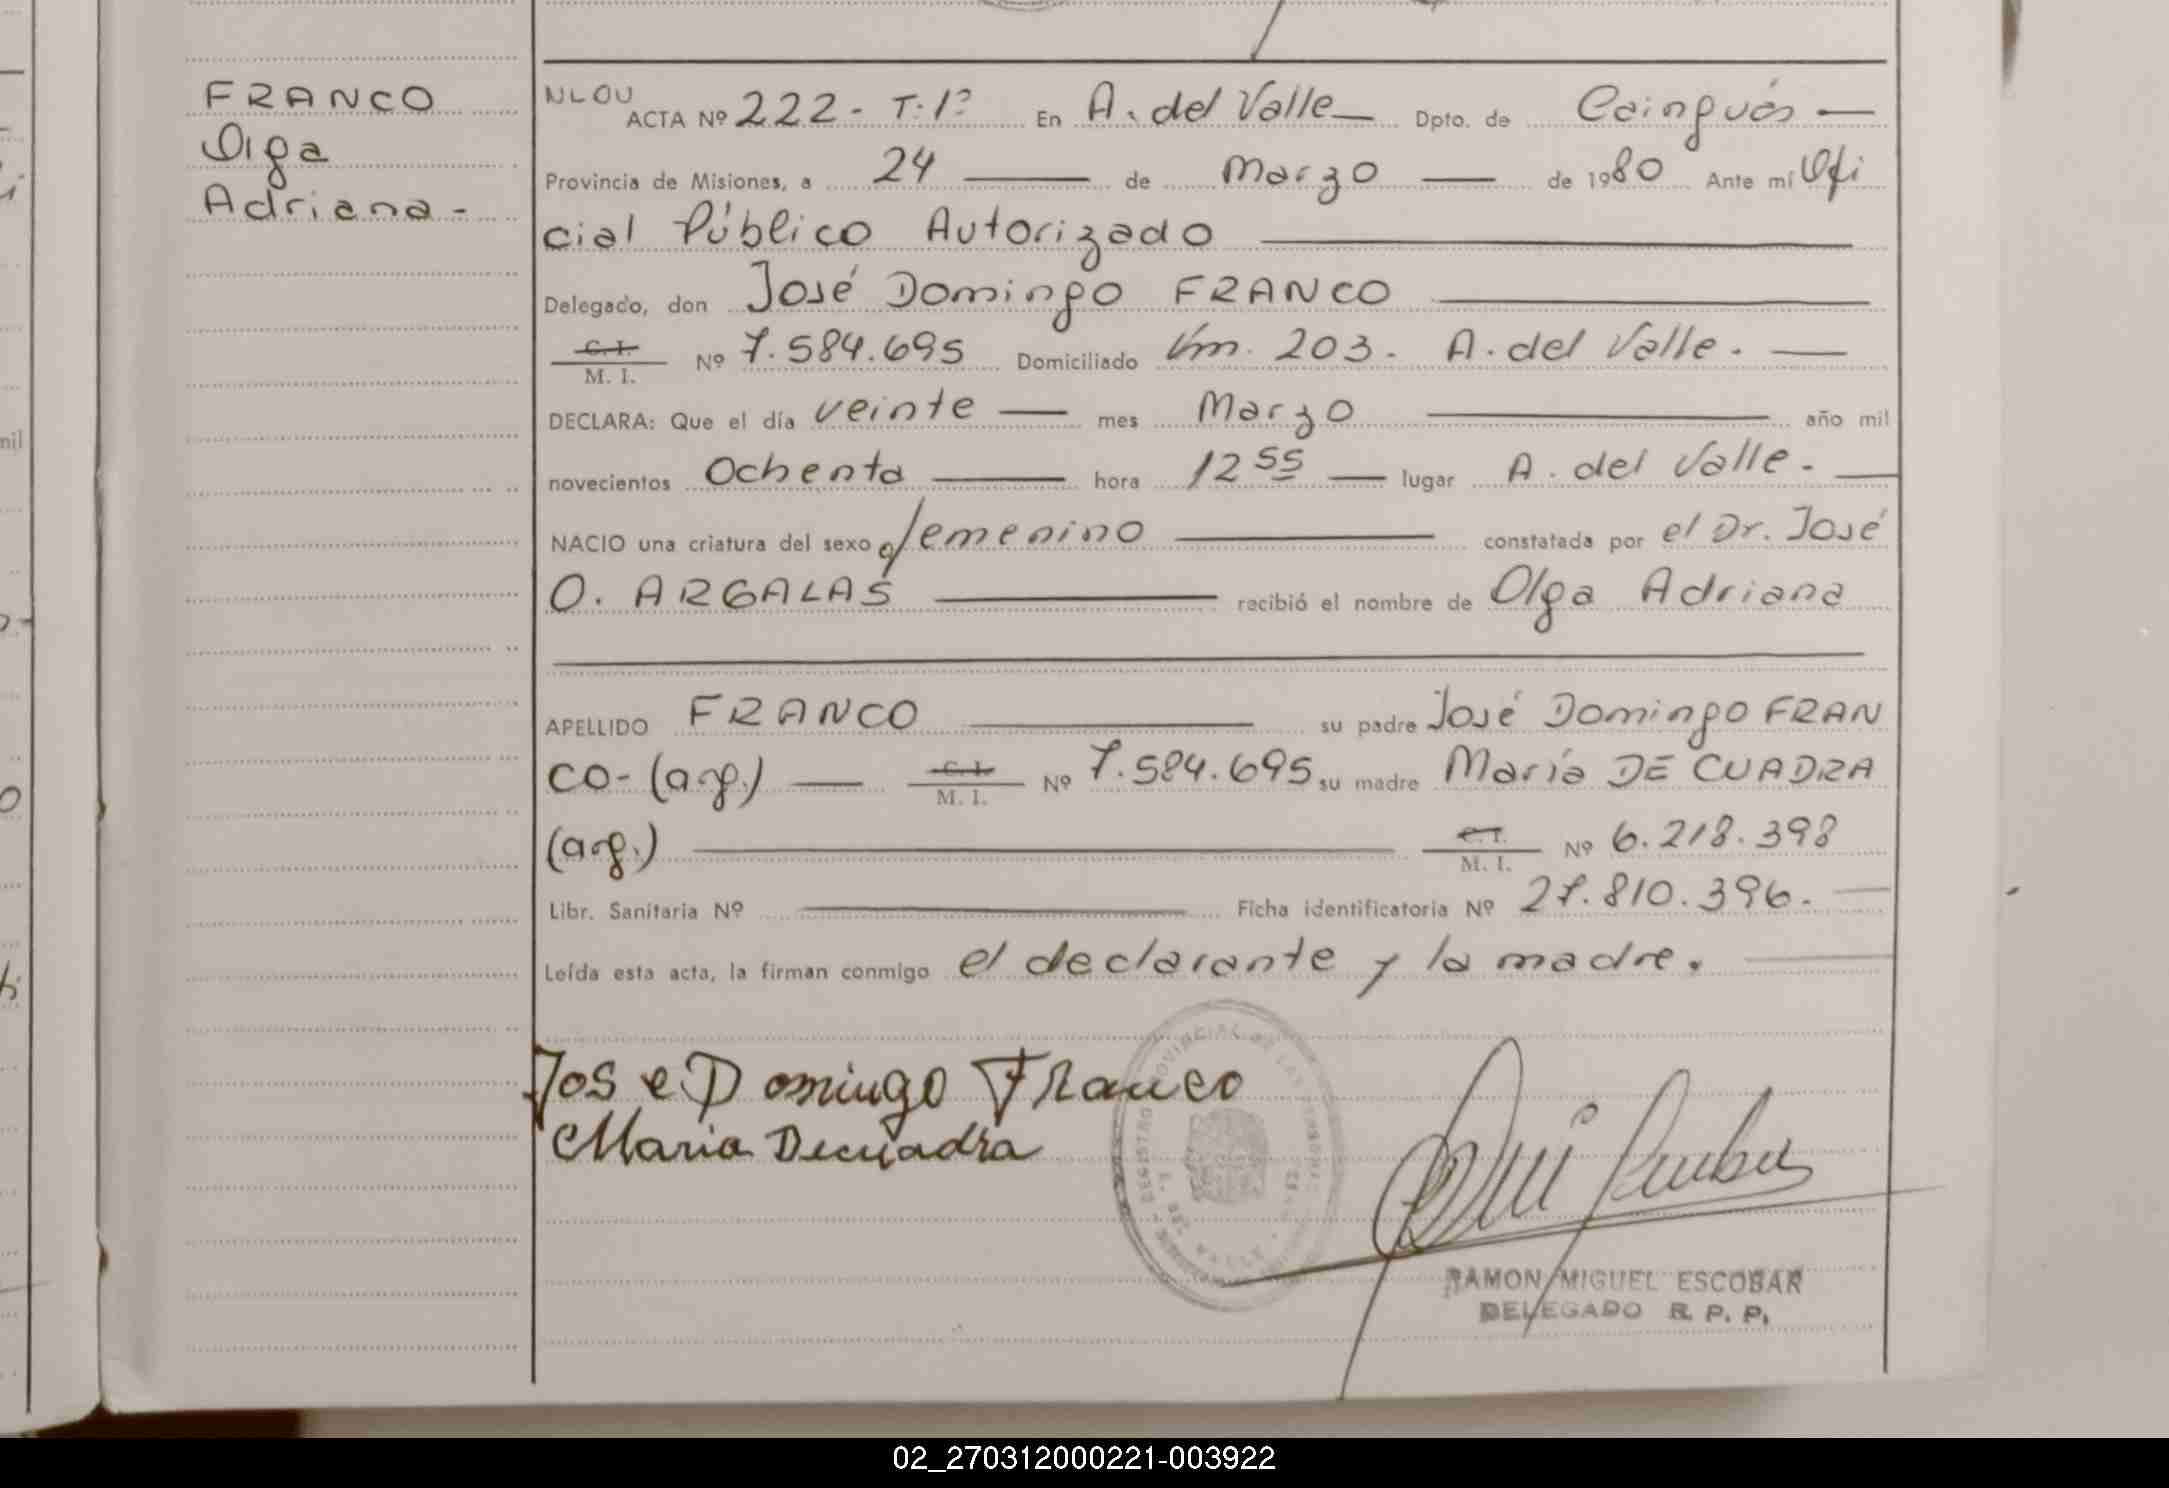 FRANCO
Olga
Adriana -
NLOU
ACTA Nº 222 - T: 1º En A. del Valle — Dpto. de Cainguás —
Provincia de Misiones, a 24 — de Marzo — de 1980 Ante mí Ofi
cial Público Autorizado —
Delegado, don José Domingo FRANCO —
C. I.
M. I. Nº 7.584.695 Domiciliado Km. 203. A. del Valle. —
DECLARA: Que el día veinte — mes Marzo — año mil
novecientos Ochenta — hora 12 55 — lugar A. del Valle. —
NACIO una criatura del sexo femenino — constatada por el Dr. José
O. ARGALAS — recibió el nombre de Olga Adriana
APELLIDO FRANCO — su padre José Domingo FRAN
CO - (arg.) — C. I. M. I. Nº 7.584.695 su madre María DE CUADRA
(arg.) — C. I. M. I. Nº 6.218.398
Libr. Sanitaria Nº — Ficha identificatoria Nº 27.810.396. —
Leída esta acta, la firman conmigo el declarante y la madre. —
Jose Domingo Franco
Maria Decuadra
RAMON MIGUEL ESCOBAR
DELEGADO R. P. P.
02_270312000221-003922